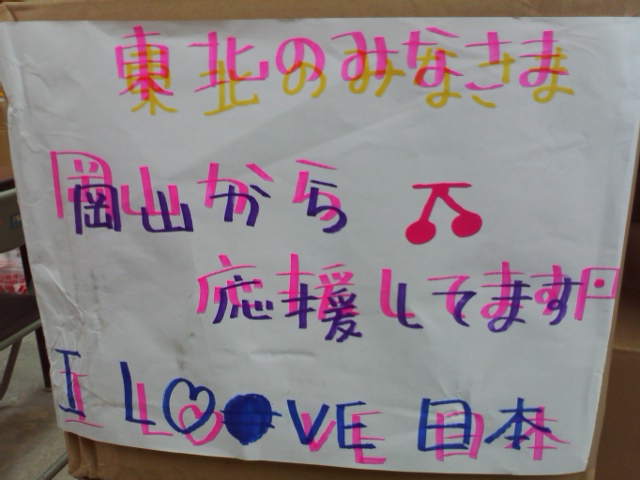 東北のみなさま
岡山から
応援してます!!
I LO♡●VE 日本